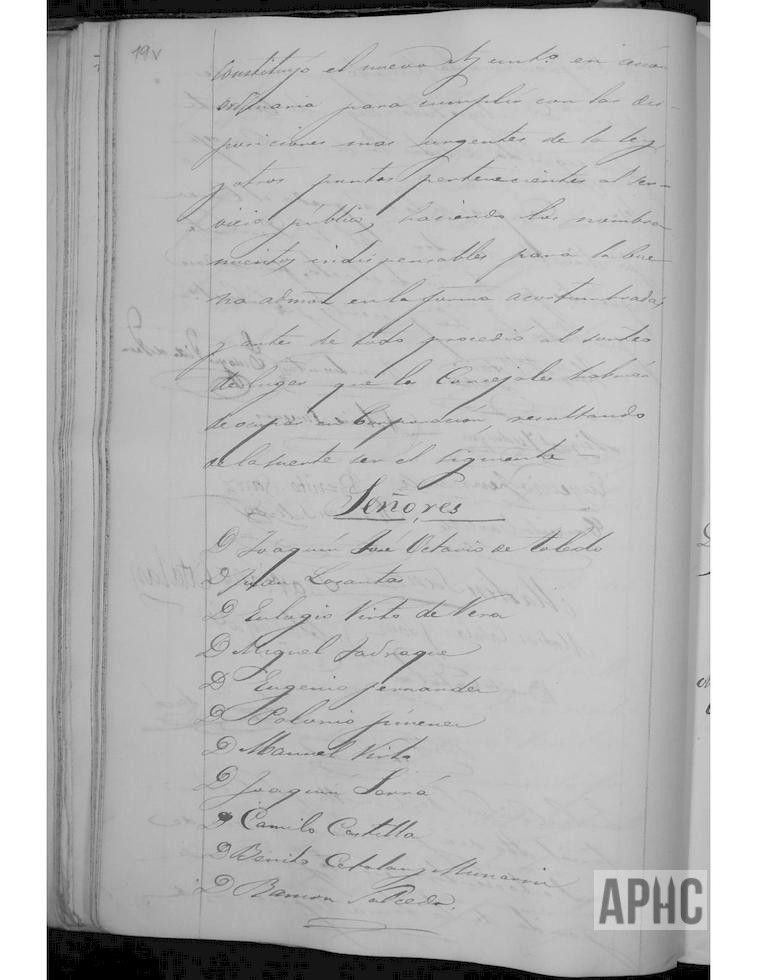 19v
constituyó el nuevo Ayuntº en sesión
ordinaria para cumplir con las dis-
posiciones mas urgentes de la ley,
y otros puntos pertenecientes al ser-
vicio público, haciendo los nombra-
mientos indispensables para la bue-
na admon en la forma acostumbrada,
y antes de todo procedió al sorteo
de lugar que los Concejales habrán
de ocupar en Corporación, resultando
de la suerte ser el siguiente
Señores
D Joaquín José Octavio de Toledo
D Juan Lozantos
D Eulogio Virto de Vera
D Miguel Jadraque
D Eugenio Jernandez
D Polonio Jimenez
D Manuel Virto
D Joaquin Serrá
D Camilo Castilla
D Benito Catalan y Munarriz
D Ramon Salcedo.
APHC